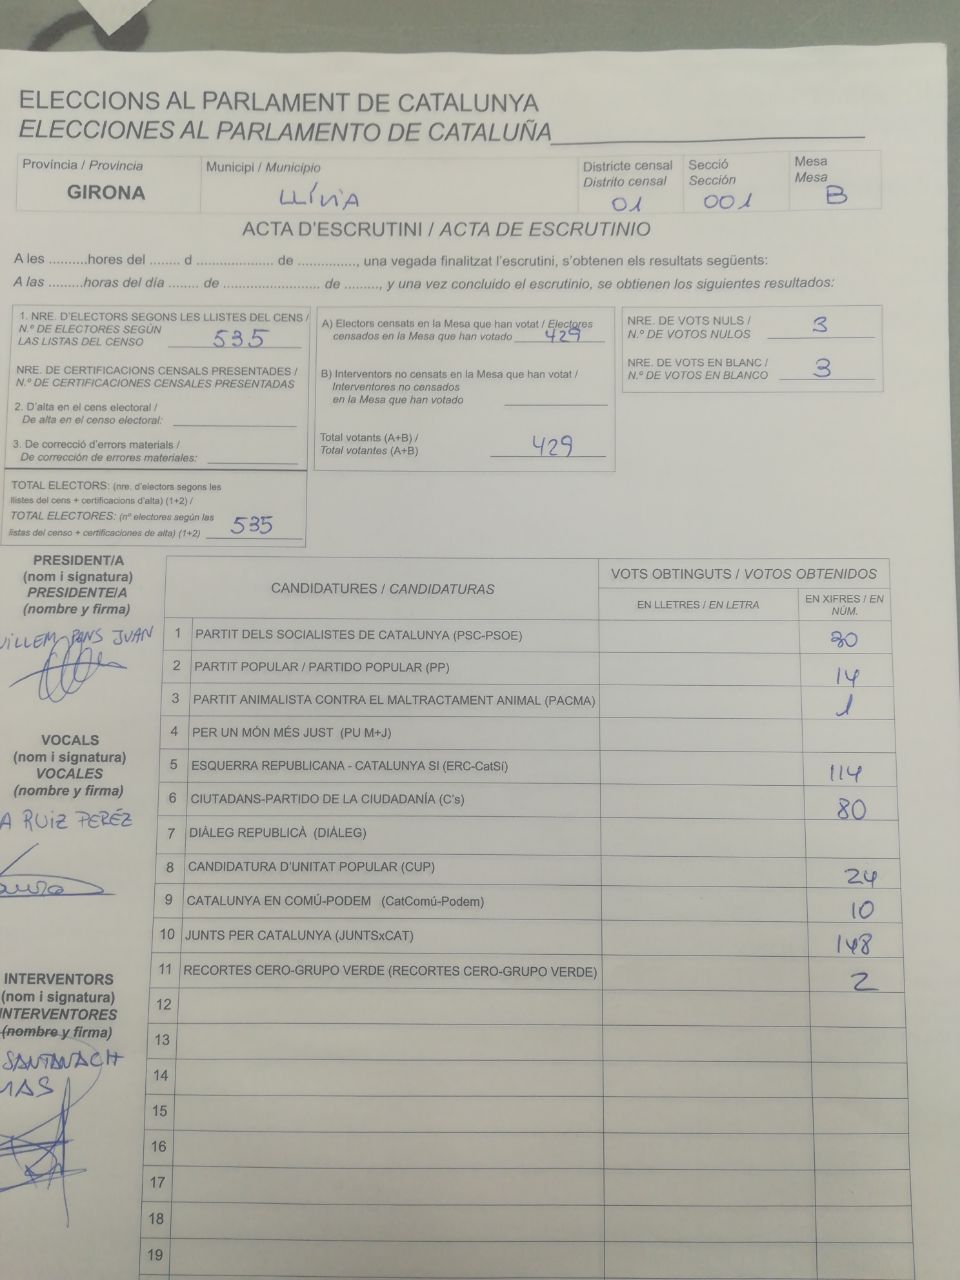 ELECCIONS AL PARLAMENT DE CATALUNYA
ELECCIONES AL PARLAMENTO DE CATALUÑA
Província / Provincia
GIRONA
Municipi / Municipio
LLÍVIA
Districte censal
Distrito censal
01
Secció
Sección
001
Mesa
Mesa
B
ACTA D'ESCRUTINI / ACTA DE ESCRUTINIO
A les ..........hores del ........ d .................... de ..............., una vegada finalitzat l'escrutini, s'obtenen els resultats següents:
A las .........horas del día ........ de ......................... de ........., y una vez concluido el escrutinio, se obtienen los siguientes resultados:
1. NRE. D'ELECTORS SEGONS LES LLISTES DEL CENS /
N.º DE ELECTORES SEGÚN
LAS LISTAS DEL CENSO 535
NRE. DE CERTIFICACIONS CENSALS PRESENTADES /
N.º DE CERTIFICACIONES CENSALES PRESENTADAS
2. D'alta en el cens electoral /
De alta en el censo electoral:
3. De correcció d'errors materials /
De corrección de errores materiales:
TOTAL ELECTORS: (nre. d'electors segons les
llistes del cens + certificacions d'alta) (1+2) /
TOTAL ELECTORES: (nº electores según las
listas del censo + certificaciones de alta) (1+2) 535
A) Electors censats en la Mesa que han votat / Electores
censados en la Mesa que han votado 429
B) Interventors no censats en la Mesa que han votat /
Interventores no censados
en la Mesa que han votado
Total votants (A+B) /
Total votantes (A+B) 429
NRE. DE VOTS NULS /
N.º DE VOTOS NULOS 3
NRE. DE VOTS EN BLANC /
N.º DE VOTOS EN BLANCO 3
PRESIDENT/A
(nom i signatura)
PRESIDENTE/A
(nombre y firma)
UILLEM PONS JUAN
VOCALS
(nom i signatura)
VOCALES
(nombre y firma)
A RUIZ PERÉZ
INTERVENTORS
(nom i signatura)
INTERVENTORES
(nombre y firma)
SANTANACH
MAS
CANDIDATURES / CANDIDATURAS
VOTS OBTINGUTS / VOTOS OBTENIDOS
EN LLETRES / EN LETRA
EN XIFRES / EN
NÚM.
1 PARTIT DELS SOCIALISTES DE CATALUNYA (PSC-PSOE) 30
2 PARTIT POPULAR / PARTIDO POPULAR (PP) 14
3 PARTIT ANIMALISTA CONTRA EL MALTRACTAMENT ANIMAL (PACMA) 1
4 PER UN MÓN MÉS JUST (PU M+J)
5 ESQUERRA REPUBLICANA - CATALUNYA SI (ERC-CatSí) 114
6 CIUTADANS-PARTIDO DE LA CIUDADANÍA (C's) 80
7 DIÀLEG REPUBLICÀ (DIÀLEG)
8 CANDIDATURA D'UNITAT POPULAR (CUP) 24
9 CATALUNYA EN COMÚ-PODEM (CatComú-Podem) 10
10 JUNTS PER CATALUNYA (JUNTSxCAT) 148
11 RECORTES CERO-GRUPO VERDE (RECORTES CERO-GRUPO VERDE) 2
12
13
14
15
16
17
18
19